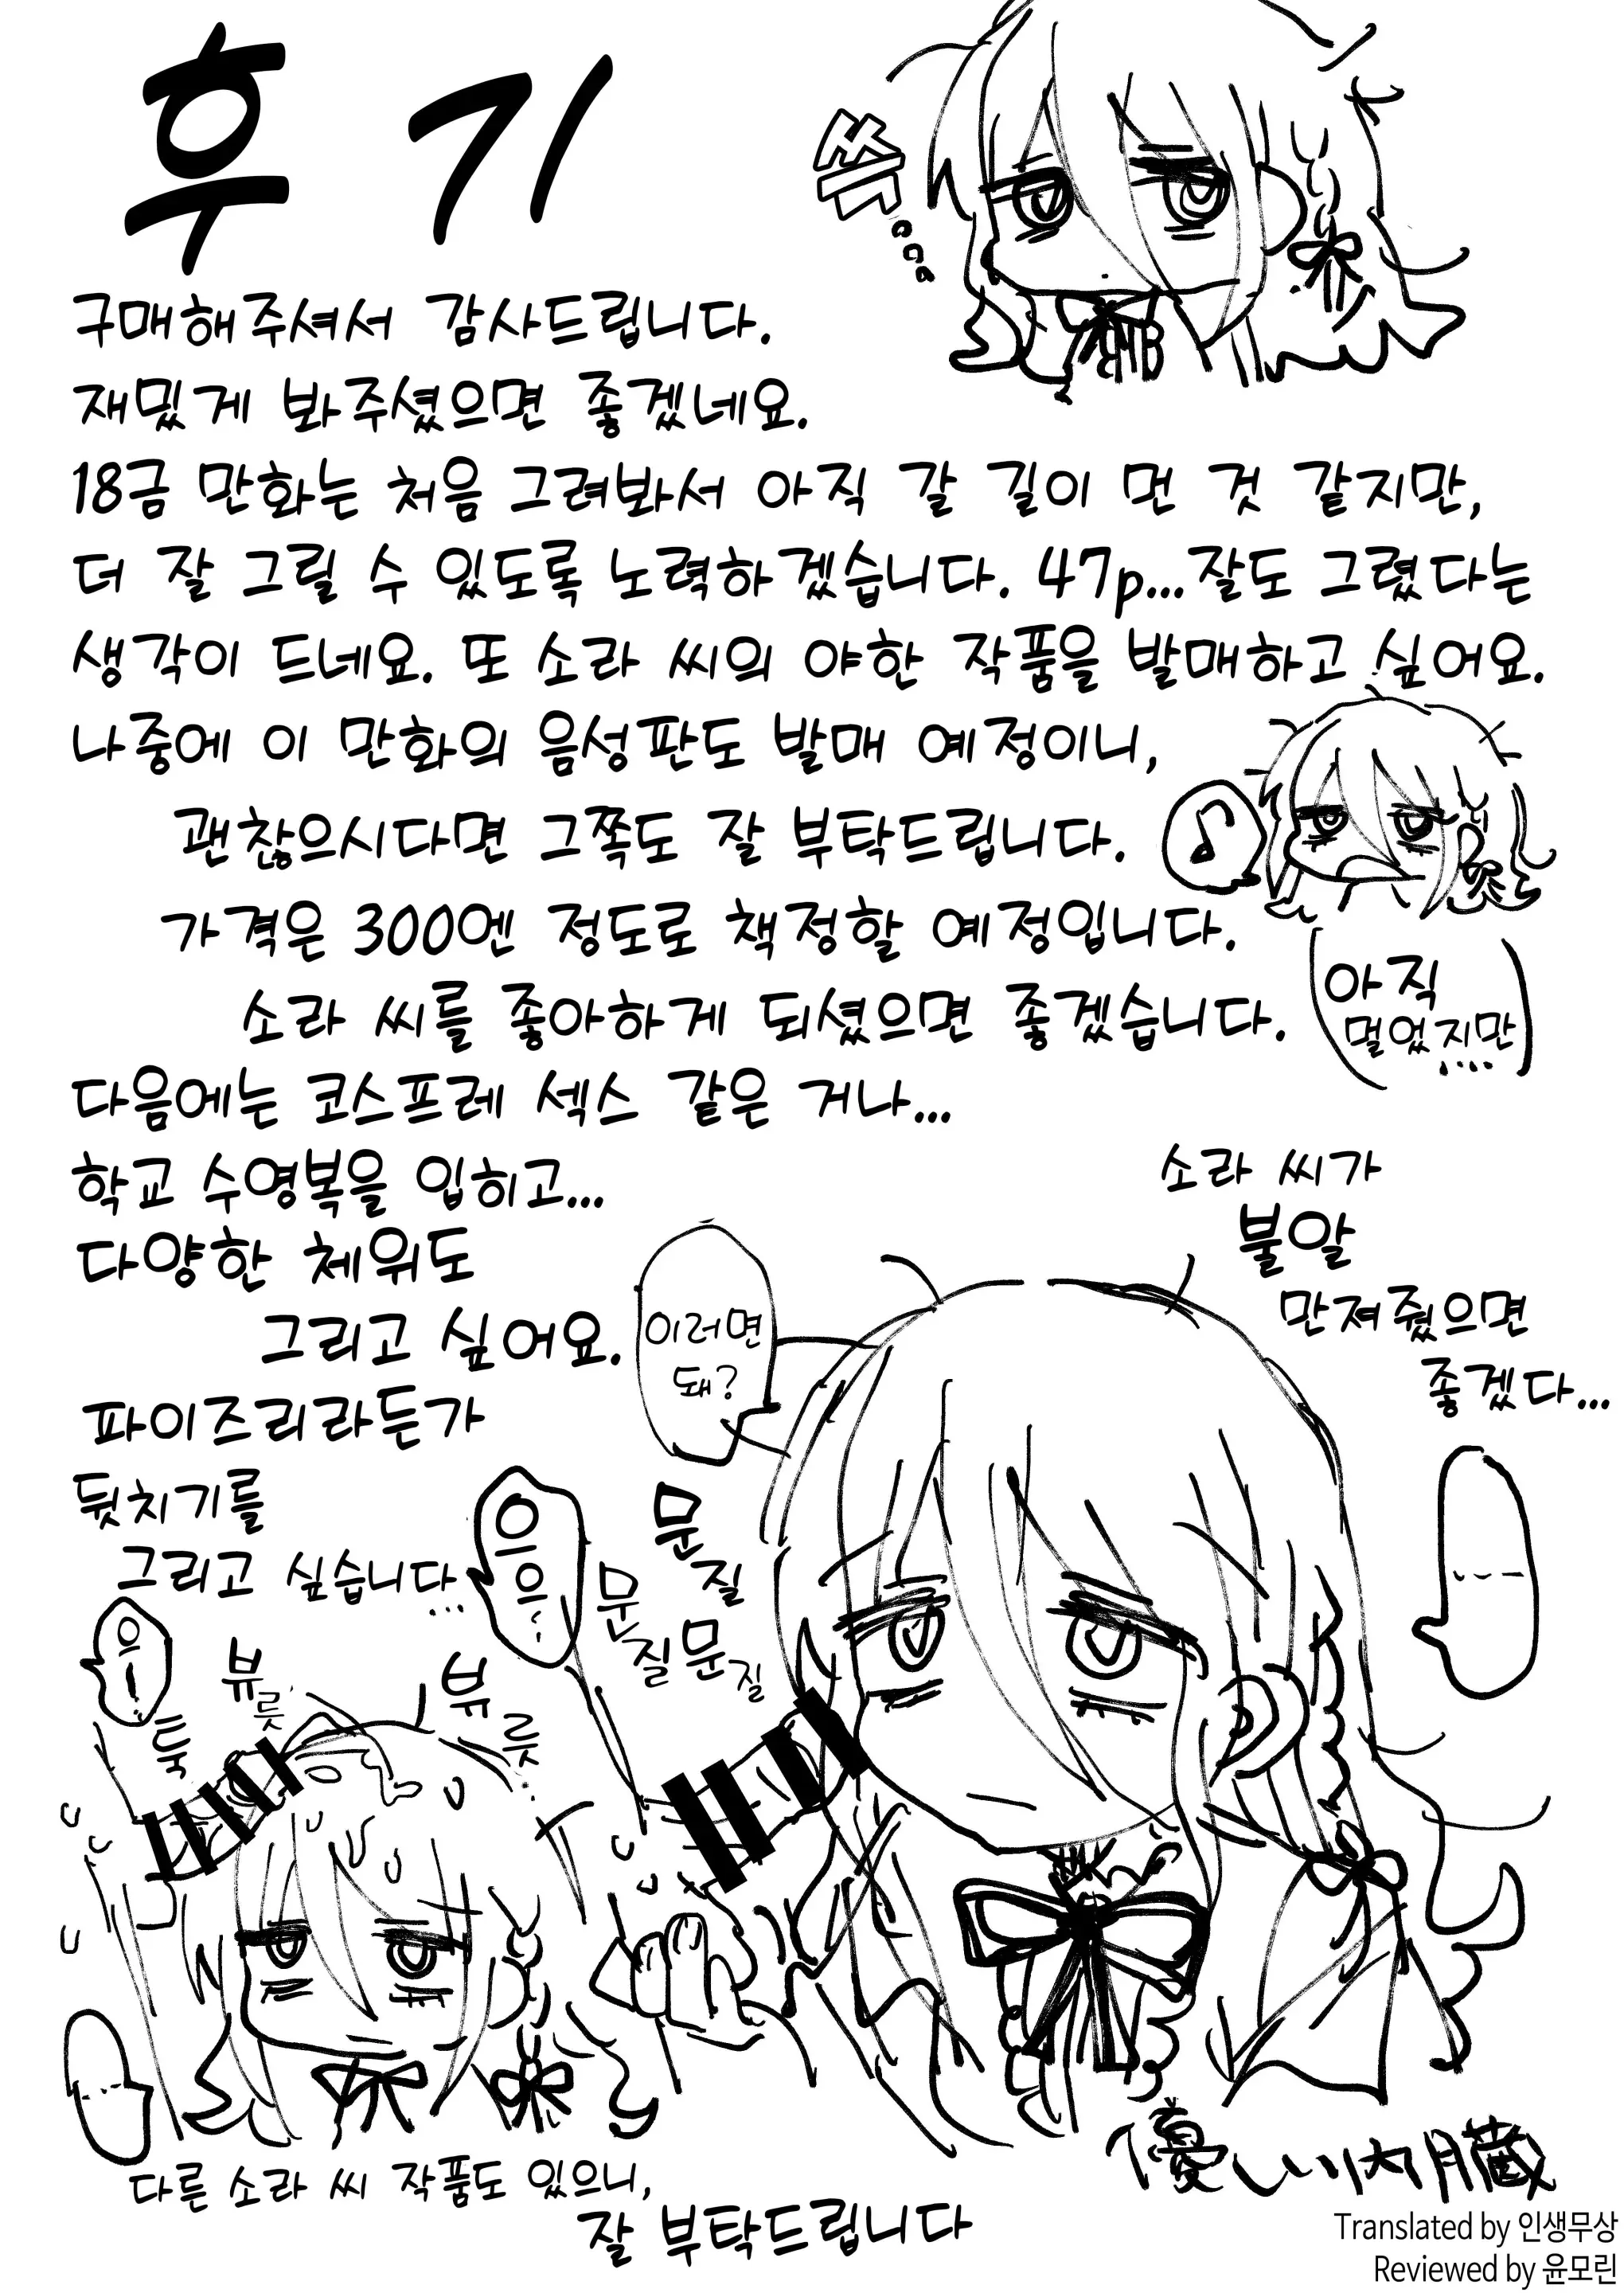 후기
쓱...
구매해주셔서 감사드립니다.
재밌게 봐주셨으면 좋겠네요.
18금 만화는 처음 그려봐서 아직 갈 길이 먼 것 같지만,
더 잘 그릴 수 있도록 노력하겠습니다. 47p...잘도 그렸다는
생각이 드네요. 또 소라 씨의 야한 작품을 발매하고 싶어요.
나중에 이 만화의 음성판도 발매 예정이니,
괜찮으시다면 그쪽도 잘 부탁드립니다.
♪
가격은 300엔 정도로 책정할 예정입니다.
(아직
멀었지만....)
소라 씨를 좋아하게 되셨으면 좋겠습니다.
다음에는 코스프레 섹스 같은 거나...
학교 수영복을 입히고...
다양한 체위도
그리고 싶어요.
파이즈리라든가
뒷치기를
그리고 싶습니다...
소라 씨가
불알
만져줬으면
좋겠다...
이러면
돼?
으으..
문질
문질문질
.....
으!
툭
뷰릇
뷰릇...
.....
다른 소라 씨 작품도 있으니,
잘 부탁드립니다
優しい内臓
Translated by 인생무상
Reviewed by 윤모린